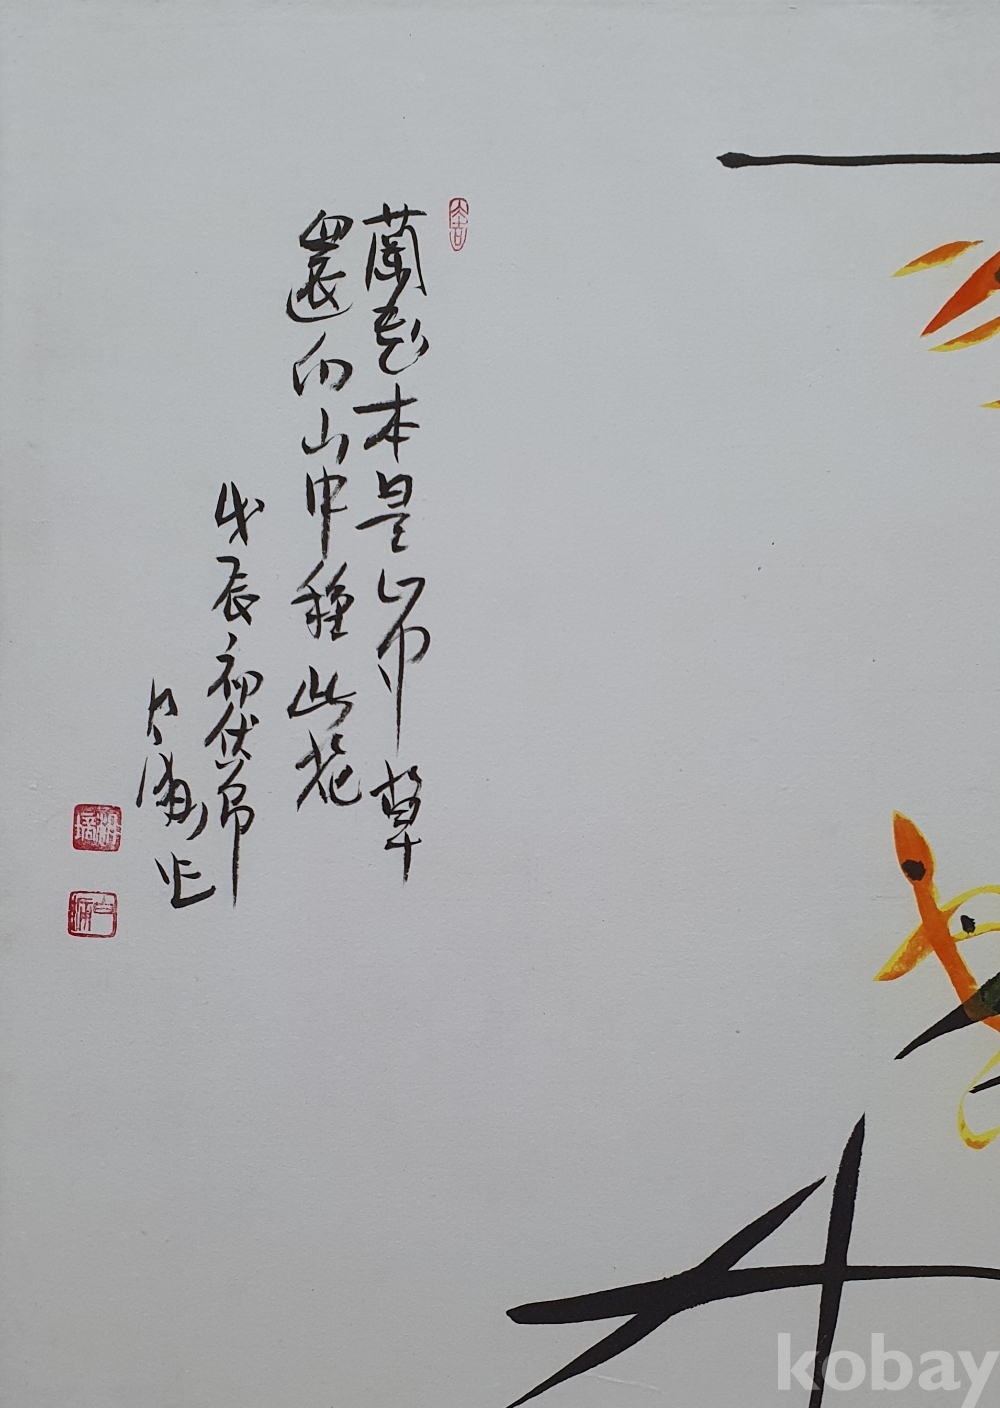 大吉
蘭花本是山中草
還向山中種此花
戊辰初伏節
作
kobay